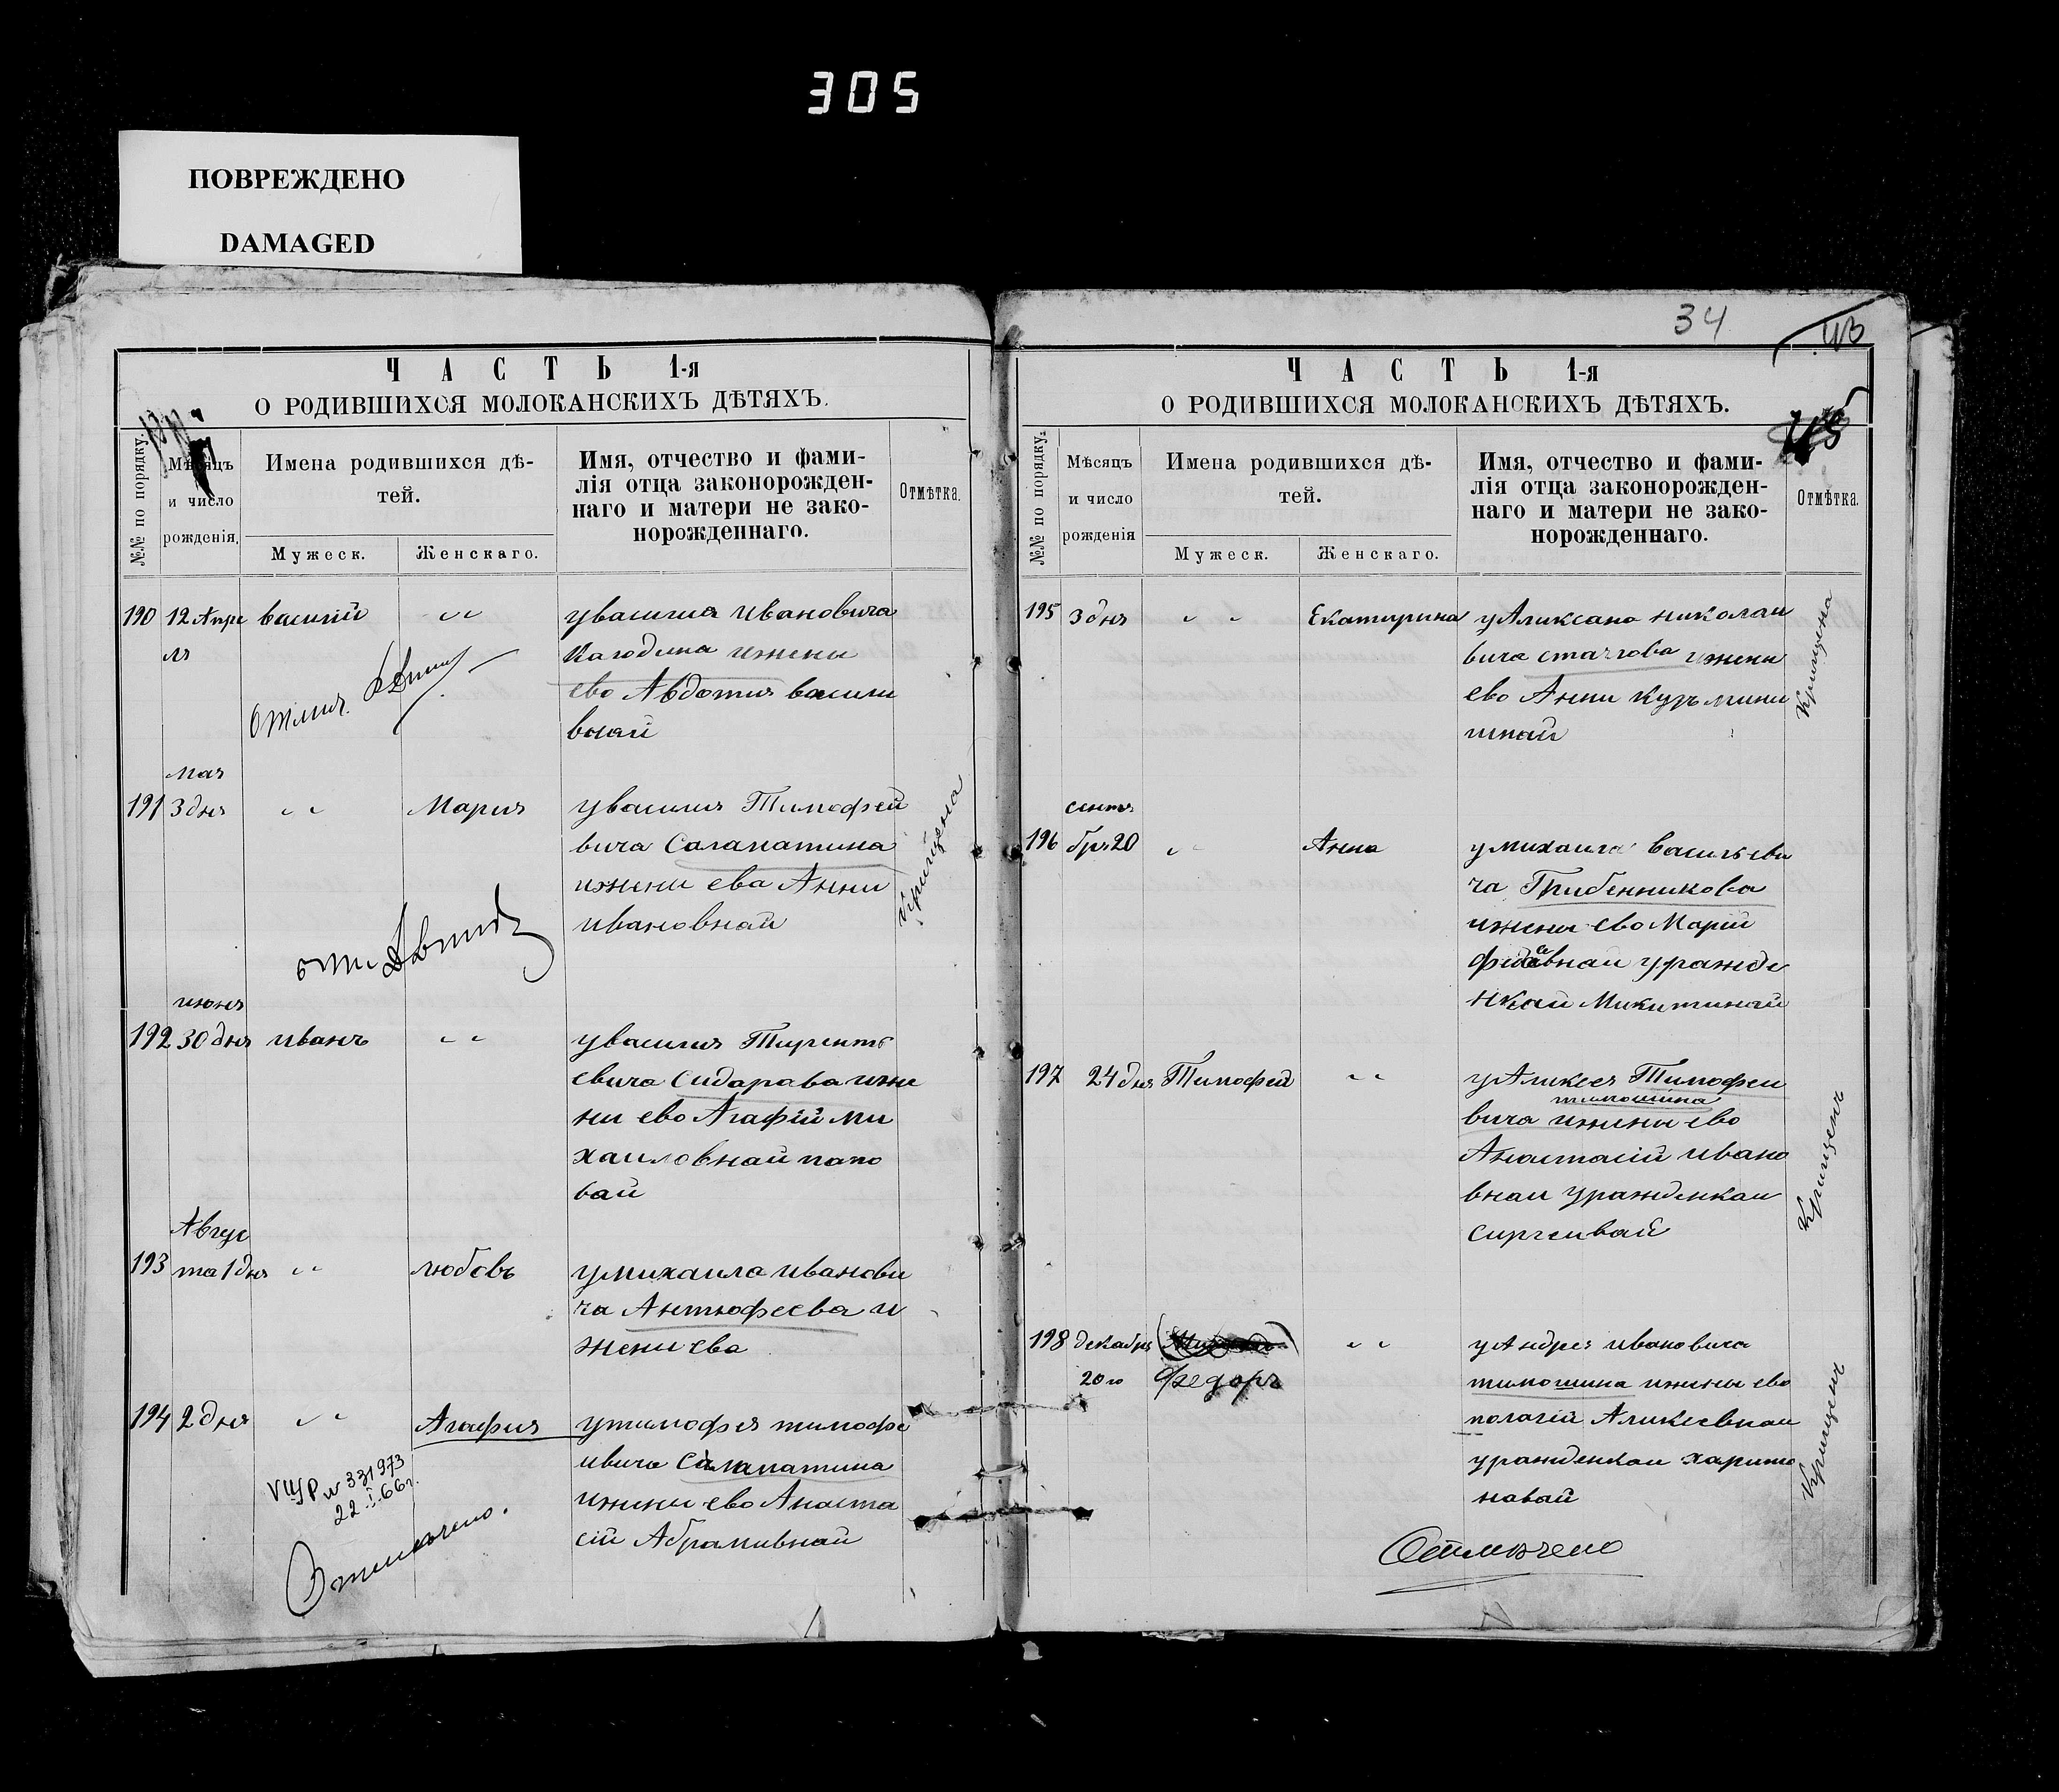 305
ПОВРЕЖДЕНО
DAMAGED
ЧАСТЬ 1-я
О РОДИВШИХСЯ МОЛОКАНСКИХЪ ДѢТЯХЪ.
№№ по порядку.
Мѣсяцъ
и число
рожденія.
Имена родившихся дѣ-
тей.
Мужеск.
Женскаго.
Имя, отчество и фами-
лія отца законорожден-
наго и матери не зако-
норожденнаго.
Отмѣтка.
190 12 Апре василiй " " увасилия ивановича
ля
ижены
ево Авдотия васили
внай
мая
191 3 дня " " Мария увасилия Тимофей
вича Салапатина
ижени ева Анни
ивановнай
июня
192 30 дня иванъ " " увасилия Тиренть
евича Сидарава иже
ни ево Агафiй ми
хаиловнай папо
вай
Авгус
193 та 1 дня " " любовь умихаила иванови
ча Антюфеева и
жени ева
194 2 дня " " Агафия утимофея тимофе
ивича Салапатина
ижини ево Анаста
сiй Абрамивнай
22.I.66 г.
34
ЧАСТЬ 1-я
О РОДИВШИХСЯ МОЛОКАНСКИХЪ ДѢТЯХЪ.
№№ по порядку.
Мѣсяцъ
и число
рожденія
Имена родившихся дѣ-
тей.
Мужеск.
Женскаго.
Имя, отчество и фами-
лія отца законорожден-
наго и матери не зако-
норожденнаго.
Отмѣтка.
195 3 дня " " Екатирина уАликсана николаи
вича ижени
ево Анни кузьмини
шнай
сентя
196 бря 20 " " Анна умихаила васильеви
ча Грибенникова
ижены ево Марiй
уражде
нкай Микитинай
197 24 дня Тимофей " " уАликсея Тимофеи
тимошина
вича ижены ево
Анастасiй ивано
внаи уражденкаи
сиргеивай
198 декабря " " уАндрея ивановича
20 го Федоръ тимошина ижины ево
пологiй Аликсевнаи
уражденкаи харито
навай
Отмечено